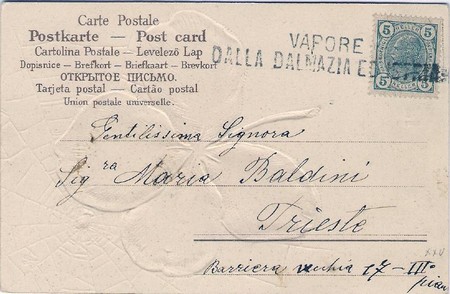 Carte Postale
Postkarte — Post card
Cartolina Postale – Levelező Lap
Dopisnice – Brefkort – Briefkaart – Brevkort
ОТКРЫТОЕ ПИСЬМО.
Tarjeta postal – Cartão postal
Union postale universelle.
VAPORE
DALLA DALMAZIA ED ISTRIA
5 5
5 5
Gentilissima Signora
Sigra Maria Baldini
Trieste
Barriera vecchia 17 – III°